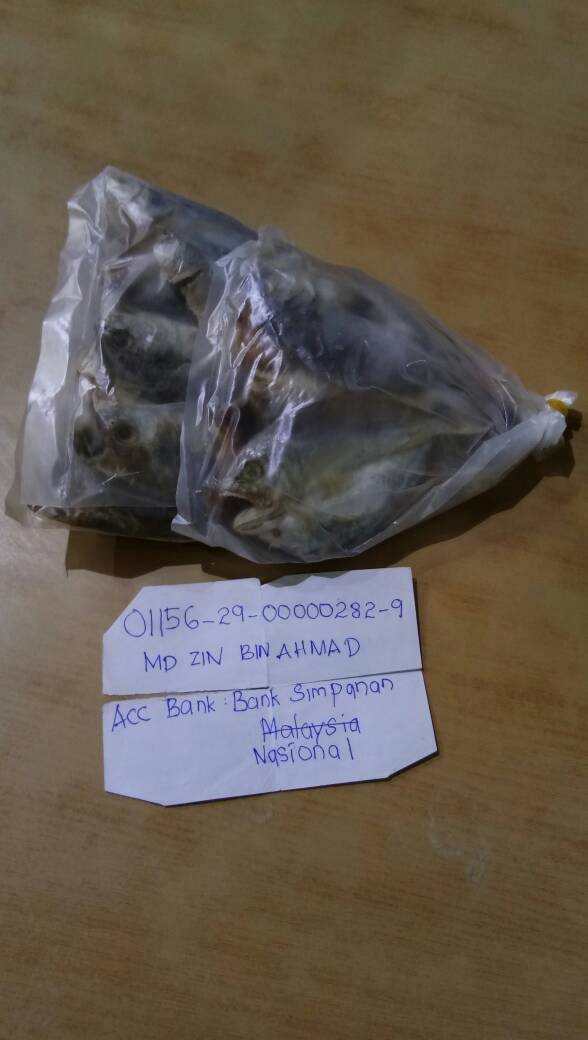 01156-29-00000282-9
MD ZIN BIN AHMAD
Acc Bank : Bank Simpanan
Malaysia
Nasional